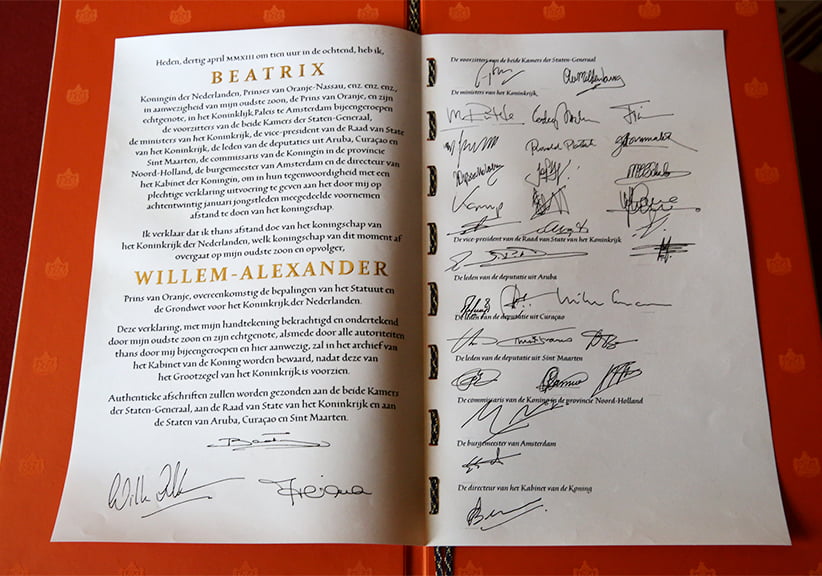 Heden, dertig april MMXIII om tien uur in de ochtend, heb ik,
BEATRIX
Koningin der Nederlanden, Prinses van Oranje-Nassau, enz. enz. enz.,
in aanwezigheid van mijn oudste zoon, de Prins van Oranje, en zijn
echtgenote, in het Koninklijk Paleis te Amsterdam bijeengeroepen
de voorzitters van de beide Kamers der Staten-Generaal,
de ministers van het Koninkrijk, de vice-president van de Raad van State
van het Koninkrijk, de leden van de deputaties uit Aruba, Curaçao en
Sint Maarten, de commissaris van de Koningin in de provincie
Noord-Holland, de burgemeester van Amsterdam en de directeur van
het Kabinet der Koningin, om in hun tegenwoordigheid met een
plechtige verklaring uitvoering te geven aan het door mij op
achtentwintig januari jongstleden meegedeelde voornemen
afstand te doen van het koningschap.
Ik verklaar dat ik thans afstand doe van het koningschap van
het Koninkrijk der Nederlanden, welk koningschap van dit moment af
overgaat op mijn oudste zoon en opvolger,
WILLEM-ALEXANDER
Prins van Oranje, overeenkomstig de bepalingen van het Statuut en
de Grondwet voor het Koninkrijk der Nederlanden.
Deze verklaring, met mijn handtekening bekrachtigd en ondertekend
door mijn oudste zoon en zijn echtgenote, alsmede door alle autoriteiten
thans door mij bijeengeroepen en hier aanwezig, zal in het archief
van het Kabinet van de Koning worden bewaard, nadat deze van
het Grootzegel van het Koninkrijk is voorzien.
Authentieke afschriften zullen worden gezonden aan de beide Kamers
der Staten-Generaal, aan de Raad van State van het Koninkrijk en aan
de Staten van Aruba, Curaçao en Sint Maarten.
De voorzitters van de beide Kamers der Staten-Generaal
De ministers van het Koninkrijk,
De vice-president van de Raad van State van het Koninkrijk
De leden van de deputatie uit Aruba
De leden van de deputatie uit Curaçao
De leden van de deputatie uit Sint Maarten
De commissaris van de Koning in de provincie Noord-Holland
De burgemeester van Amsterdam
De directeur van het Kabinet van de Koning